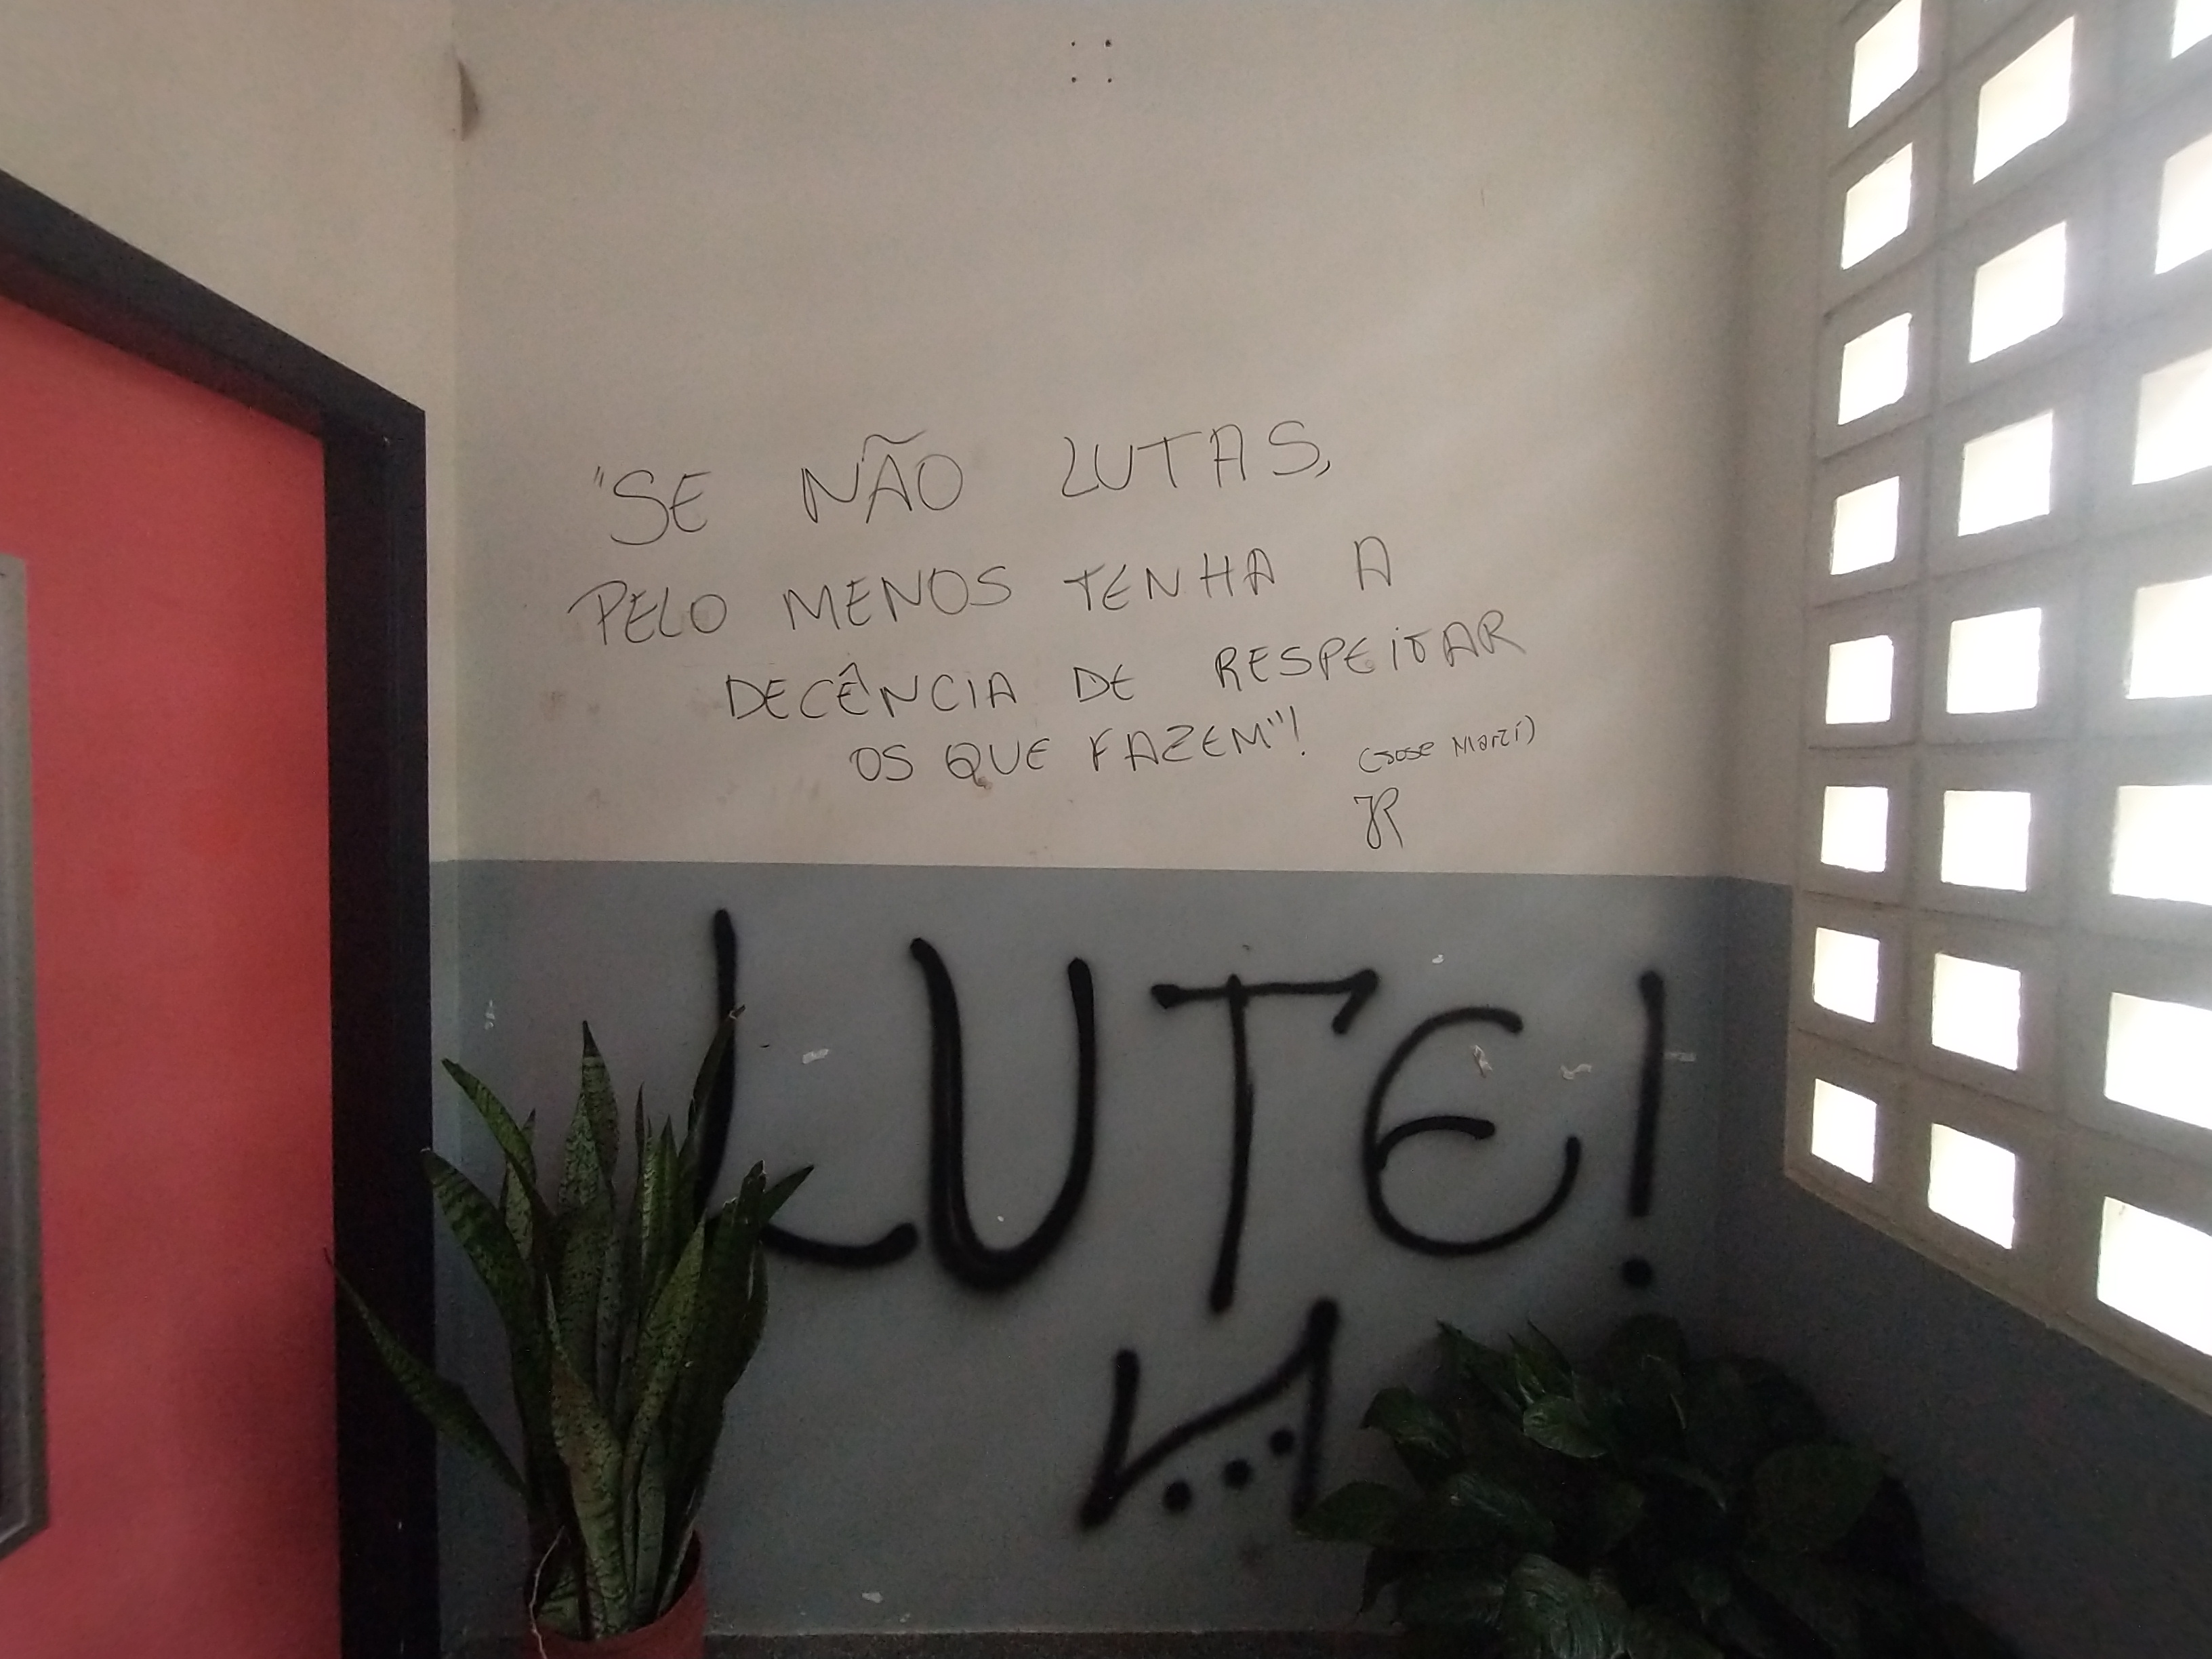 "SE NÃO LUTAS,
PELO MENOS TENHA A
DECÊNCIA DE RESPEITAR
OS QUE FAZEM"!
(JOSE Martí)
JR
LUTE!